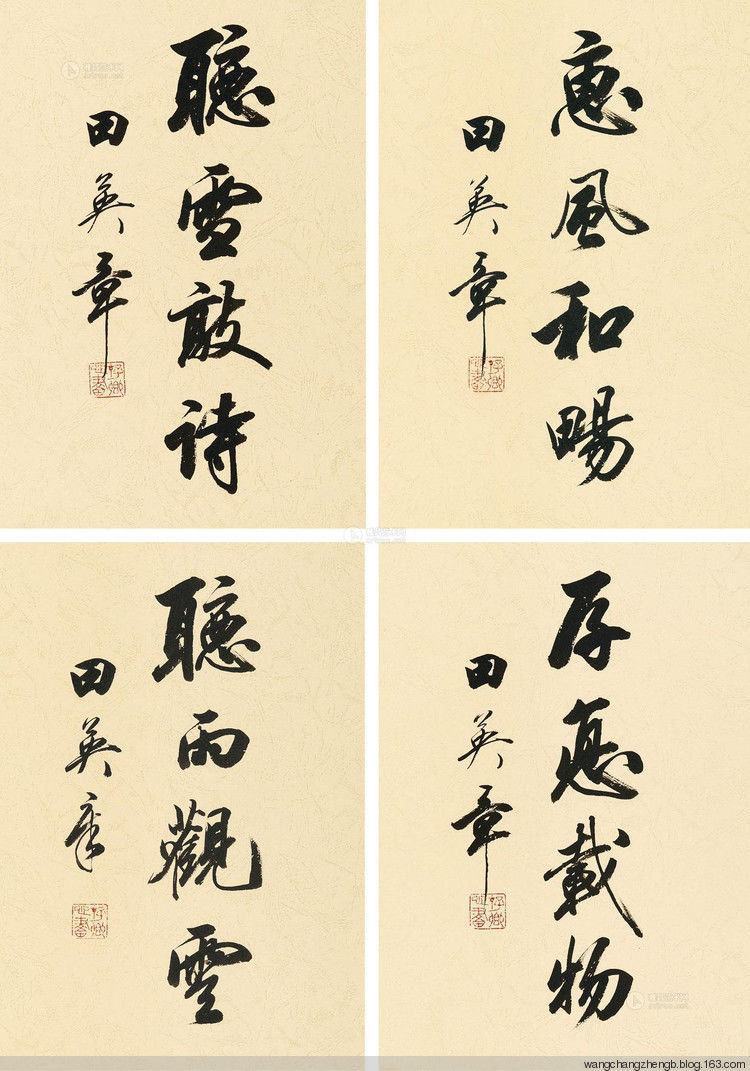 聽雪敲詩
田英章
惠風和暢
田英章
聽雨觀雲
田英章
厚德載物
田英章
wangchangzhengb.blog.163.com